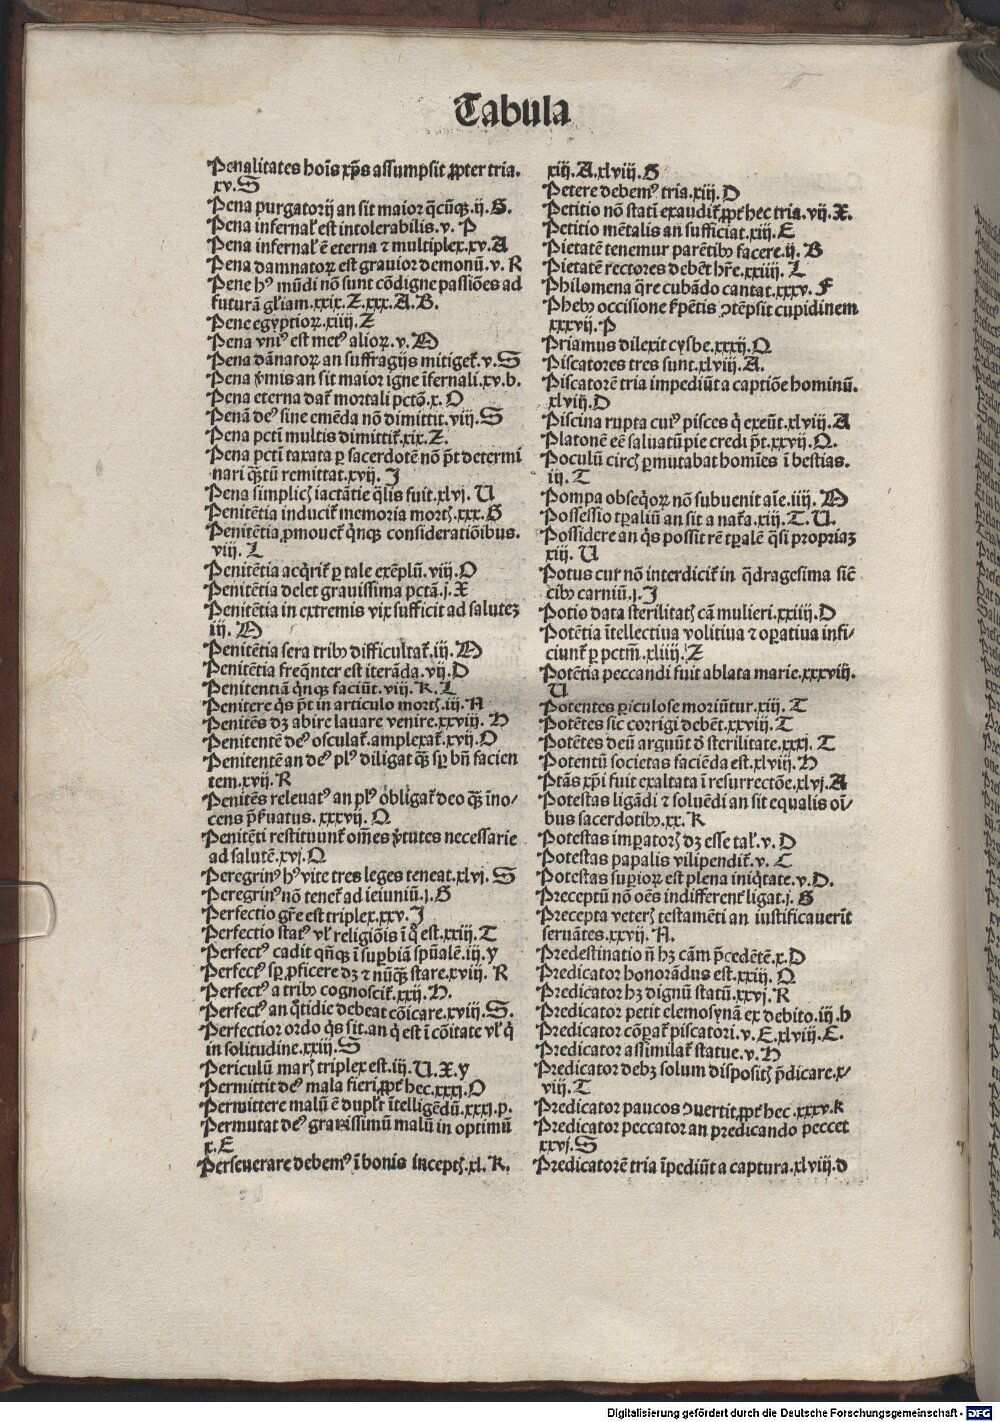 Tabula
Penalitates hoīs xp̄s assumpsit ꝓpter tria.
xv. S
Pena purgatorij an sit maior q̄cūqꝫ.ij. G.
Pena infernał est intolerabilis.v. P
Pena infernał ē eterna ⁊ multiplex.xv. A
Pena damnatoꝝ est grauior demonū.v. R
Pene hꝰ mūdi nō sunt cōdigne passiōes ad
futurā gl̄iam.xxix. Z.xxx. A. B.
Pene egyptioꝝ.xiiij. Z
Pena vniꝰ est metꝰ alioꝝ.v. M
Pena dānatoꝝ an suffragijs mitiget̄.v. S
Pena v̄mis an sit maior igne īfernali.xv.b.
Pena eterna dat̄ mortali pctō.x. O
Penā deꝰ sine emēda nō dimittit.viij. S
Pena pcti multis dimittit̄.xix. Z.
Pena pcti taxata ꝑ sacerdotē nō p̄t determi
nari qꝫ̄tū remittat.xvij. I
Pena simplicꝭ iactātie q̄lis fuit.xlvj. U
Penitētia inducit̄ memoria mortꝭ.xxx. G
Penitētia ꝓmouet̄ q̇nqꝫ consideratiōibus.
viij. L
Penitētia acq̇rit̄ ꝑ tale exēplū.viij. O
Penitētia delet grauissima pctā.j. X
Penitētia in extremis vix sufficit ad salutēꝫ
iij. M
Penitētia sera tribꝰ difficultat̄.iij. M
Penitētia freq̄nter est iterāda.vij. D
Penitentiā q̇nqꝫ faciūt.viij. K. L
Penitere q̇s p̄t in articulo mortꝭ.iij. N
Penitēs dꝫ abire lauare venire.xxviij. H
Penitentē deꝰ osculat̄.amplexat̄.xvij. O
Penitentē an deꝰ plꝰ diligat qꝫ̄ sꝑ bn̄ facien
tem.xvij. R
Penitēs releuatꝰ an plꝰ obligat̄ deo qꝫ̄ īno⸗
cens p̄ẜuatus. xxxvij. Q
Penitēti restituunt̄ om̄es v̄tutes necessarie
ad salutē.xvj. Q
Peregrinꝰ hꝰ vite tres leges teneat.xlvj. S
Peregrinꝰ nō tenet̄ ad ieiuniū.j. G
Perfectio gr̄e est triplex.xxv. I
Perfectio statꝰ vł religiōis ī q̊ est.xxiij. T
Perfectꝰ cadit qn̄qꝫ ī suꝑbiā spūalē.iij. y
Perfectꝰ sꝑ ꝓficere dꝫ ⁊ nūqꝫ̄ stare.xviij. R
Perfectꝰ a tribꝰ cognoscit̄.xxij. H.
Perfectꝰ an q̇tidie debeat cōicare.xviij. S.
Perfectior ordo q̇s sit.an q̇ est ī cōitate vł q̇
in solitudine.xxiij. S
Periculū marꝭ triplex est.iij. U. X. y
Permittit deꝰ mala fieri ꝓpt̄ hec.xxxj. O
Permittere malū ē duplr̄ ītelligēdū.xxxj. p.
Permutat deꝰ grauissimū malū in optimū
x. E
Perseuerare debemꝰ ī bonis inceptꝭ.xl. K.
xiij. A.xlviij. G
Petere debemꝰ tria.xiij. D
Petitio nō statī exaudit̄ ꝓpt̄ hec tria. vij. X.
Petitio mētalis an sufficiat.xiij. E
Pietatē tenemur parētibꝰ facere.ij. B
Pietatē rectores debēt hr̄e.xxiiij. L
Philomena q̄re cubādo cantat.xxxv. F
Phebꝰ occisione ẜpētis ↄtēpsit cupidinem
xxxvij. P
Priamus dilexit cysbe.xxxij. Q
Piscatores tres sunt.xlviij. A.
Piscatorē tria impediūt a captiōe hominū.
xlviij. D
Piscina rupta cuiꝰ pisces q̇ exeūt.xlviij. A
Platonē eē saluatū pie credi p̄t.xxvij. Q.
Poculū circꝭ ꝑmutabat homīes ī bestias.
iij. T
Pompa obseq̇oꝝ nō subuenit aīe.iiij. M
Possessio tꝑaliū an sit a nat̄a.xiij. T. U.
Possidere an q̇s possit rē tꝑalē q̄si propriaꝫ
xiij. U
Potus cur nō interdicit̄ in q̄dragesima sic̄
cibꝰ carniū.j. I
Potio data sterilitatꝭ cā mulieri.xxiiij. D
Potētia ītellectiua volitiua ⁊ oꝑatiua infi⸗
ciunt̄ ꝑ pctm̄.xliiij. Z
Potētia peccandi fuit ablata marie.xxxviij.
U
Potentes ꝑiculose moriūtur.xiij. T
Potētes sic corrigi debēt.xxviij. T
Potētes deū arguūt ð sterilitate.xxxj. T
Potentū societas faciēda est.xlviij. H
Ptās xp̄i fuit exaltata ī resurrectōe.xlvj. A
Potestas ligādi ⁊ soluēdi an sit equalis oī⸗
bus sacerdotibꝰ.xx. K
Potestas imꝑatorꝭ dꝫ esse tał.v. D
Potestas papalis vilipendit̄.v. C
Potestas suꝑioꝝ est plena iniq̇tate.v. D.
Preceptū nō oēs indifferent̄ ligat.j. G
Precepta veterꝭ testamēti an iustificauerīt
seruātes.xxvij. N.
Predestinatio n̄ hꝫ cām p̄cedētē.x. D
Predicator honorādus est.xxiij. Q
Predicator hꝫ dignū statū.xxvj. R
Predicator petit elemosynā ex debito.iij. h
Predicator cōꝑat̄ piscatori.v. E.xlviij. E.
Predicator assimilat̄ statue.v. H
Predicator debꝫ solum dispositꝭ p̄dicare.x⸗
viij. T
Predicator paucos ↄuertit ꝓpt̄ hec .xxxv. k
Predicator peccator an predicando peccet
xxvj. S
Predicatorē tria īpediūt a captura.xlviij. d
Digitalisierung gefördert durch die Deutsche Forschungsgemeinschaft - DFG